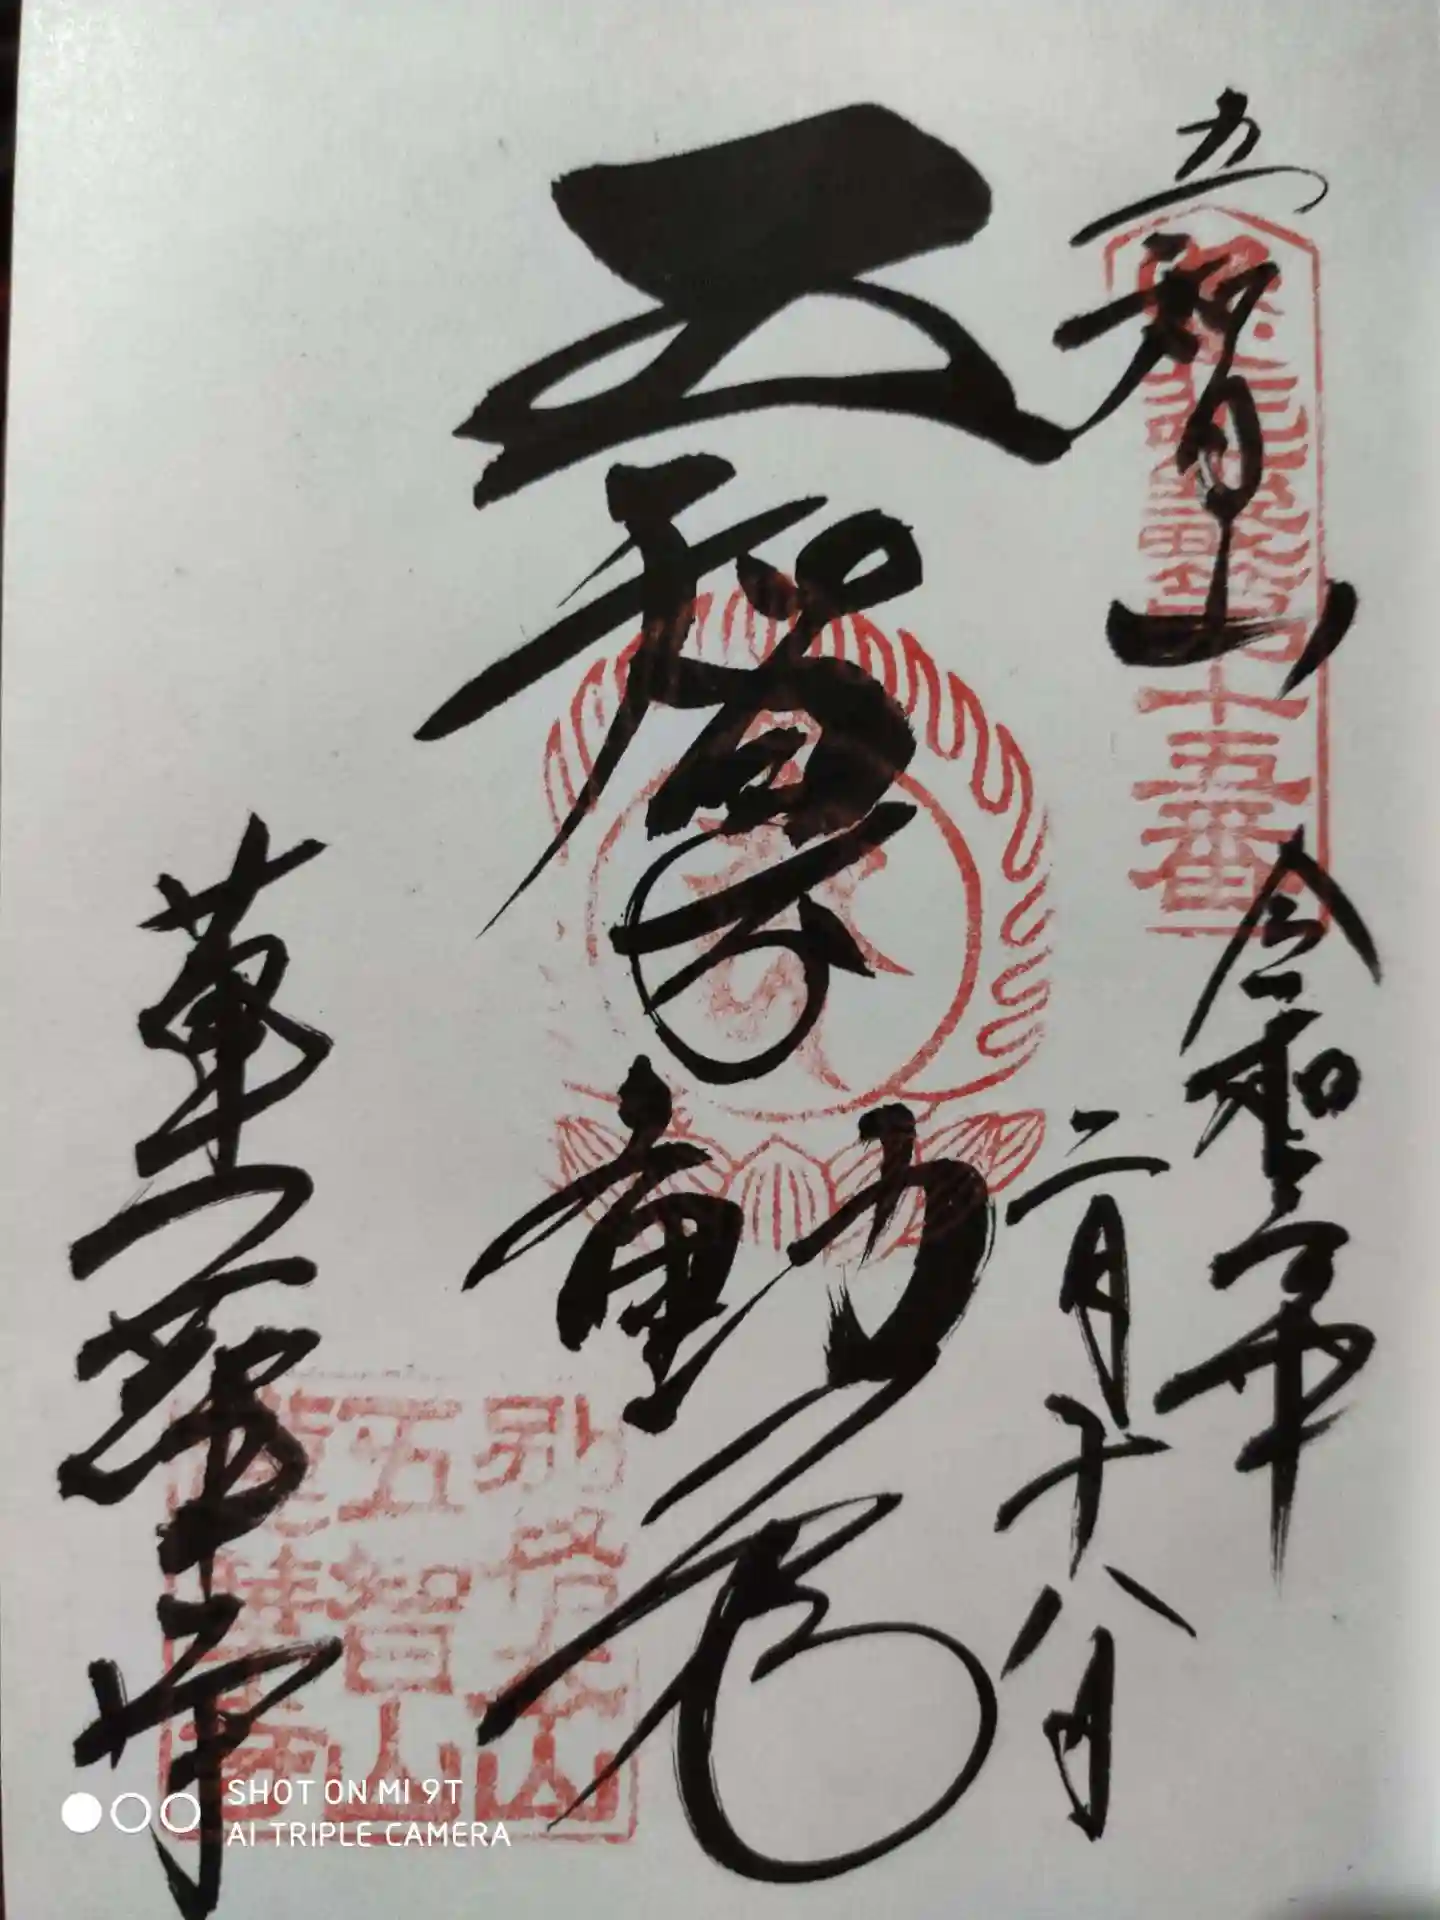 五智山
第十五番
令和三年
二月十八日
五智不動尊
蓮華寺
別格本山
五智山
蓮華寺
SHOT ON MI 9T
AI TRIPLE CAMERA